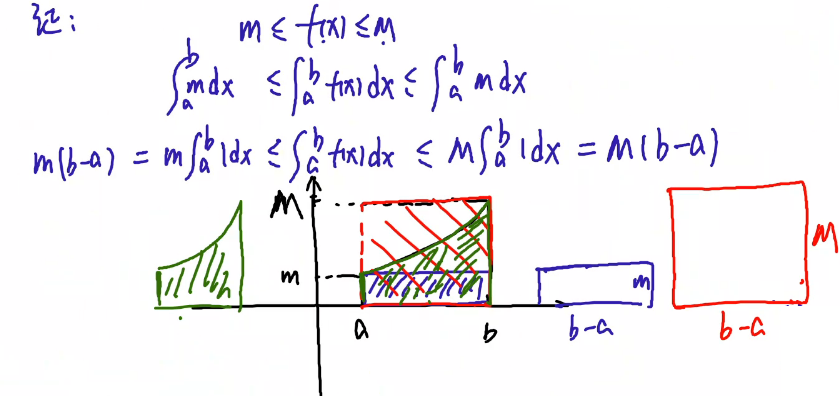 证:
m ≤ f(x) ≤ M
∫_a^b m dx ≤ ∫_a^b f(x) dx ≤ ∫_a^b m dx
m(b-a) = m∫_a^b 1dx ≤ ∫_a^b f(x)dx ≤ M∫_a^b 1dx = M(b-a)
M
M
m
m
a
b
b-a
b-a